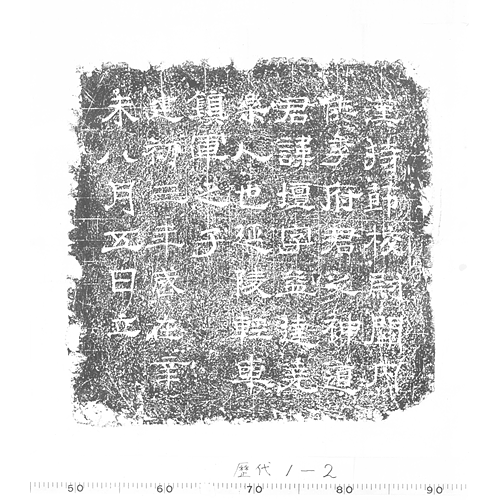 持節板封關內
侯李府君之神道
君諱垣字孟達
人也延陵輕車
鎮軍之子
建初二年歲在辛
未八月五日立
歷代 1-2
50 60 70 80 90